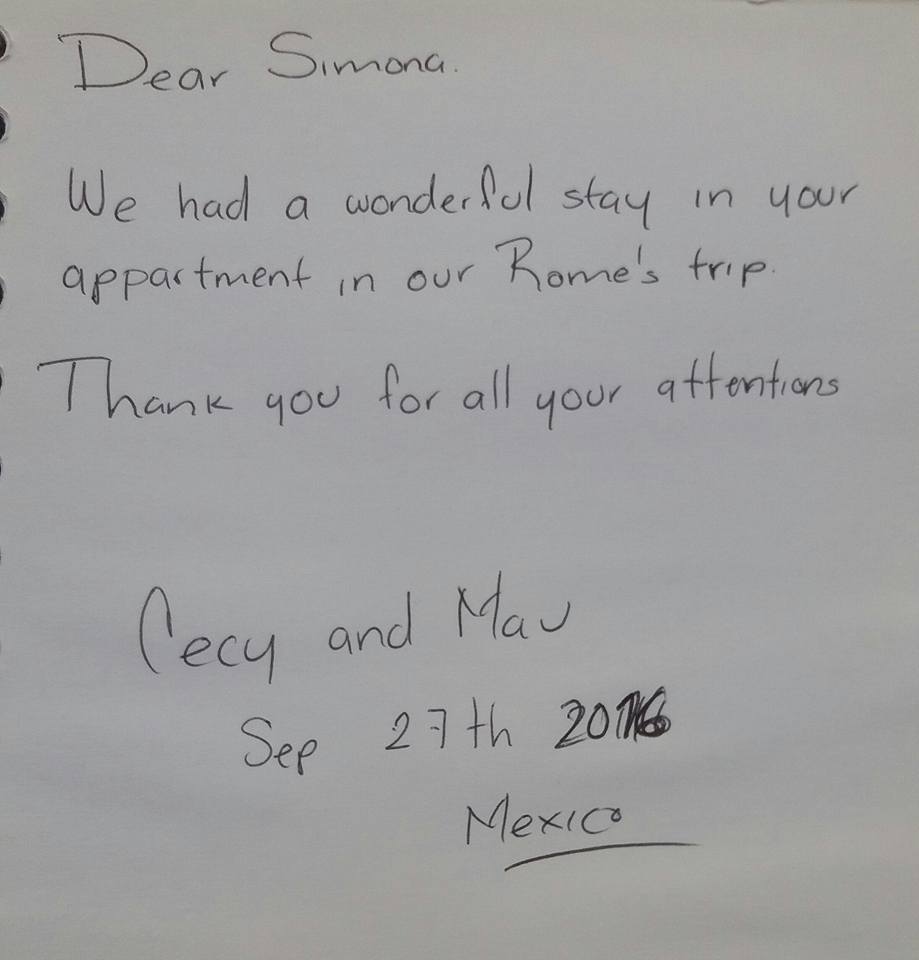 Dear Simona.
We had a wonderful stay in your
appartment in our Rome's trip.
Thank you for all your attentions
Cecy and Mau
Sep 27th 2016
Mexico